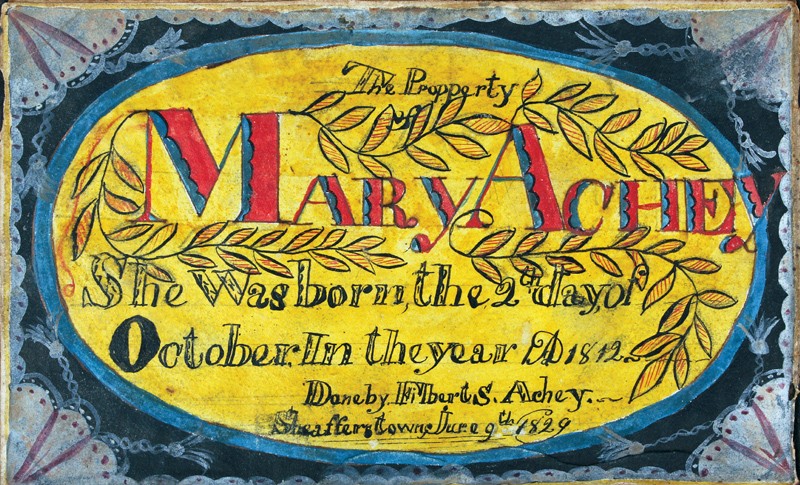 The Propperty
of
Mary Achey
She Was born, the 2d day, of
October. In the year AD 1812.
Done by. Filbert S. Achey.
Sheafferstown June 9th 1829